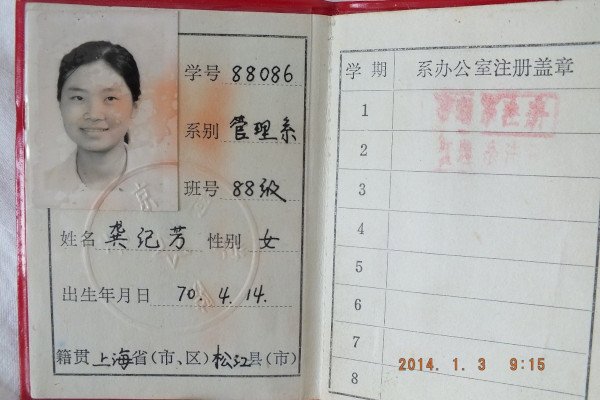 学号 88086
系别 管理系
班号 88级
姓名 龚纪芳 性别 女
出生年月日 70.4.14.
籍贯 上海省(市、区)松江县(市)
学期 系办公室注册盖章
1
2
3
4
5
6
7
8
2014. 1. 3 9:15